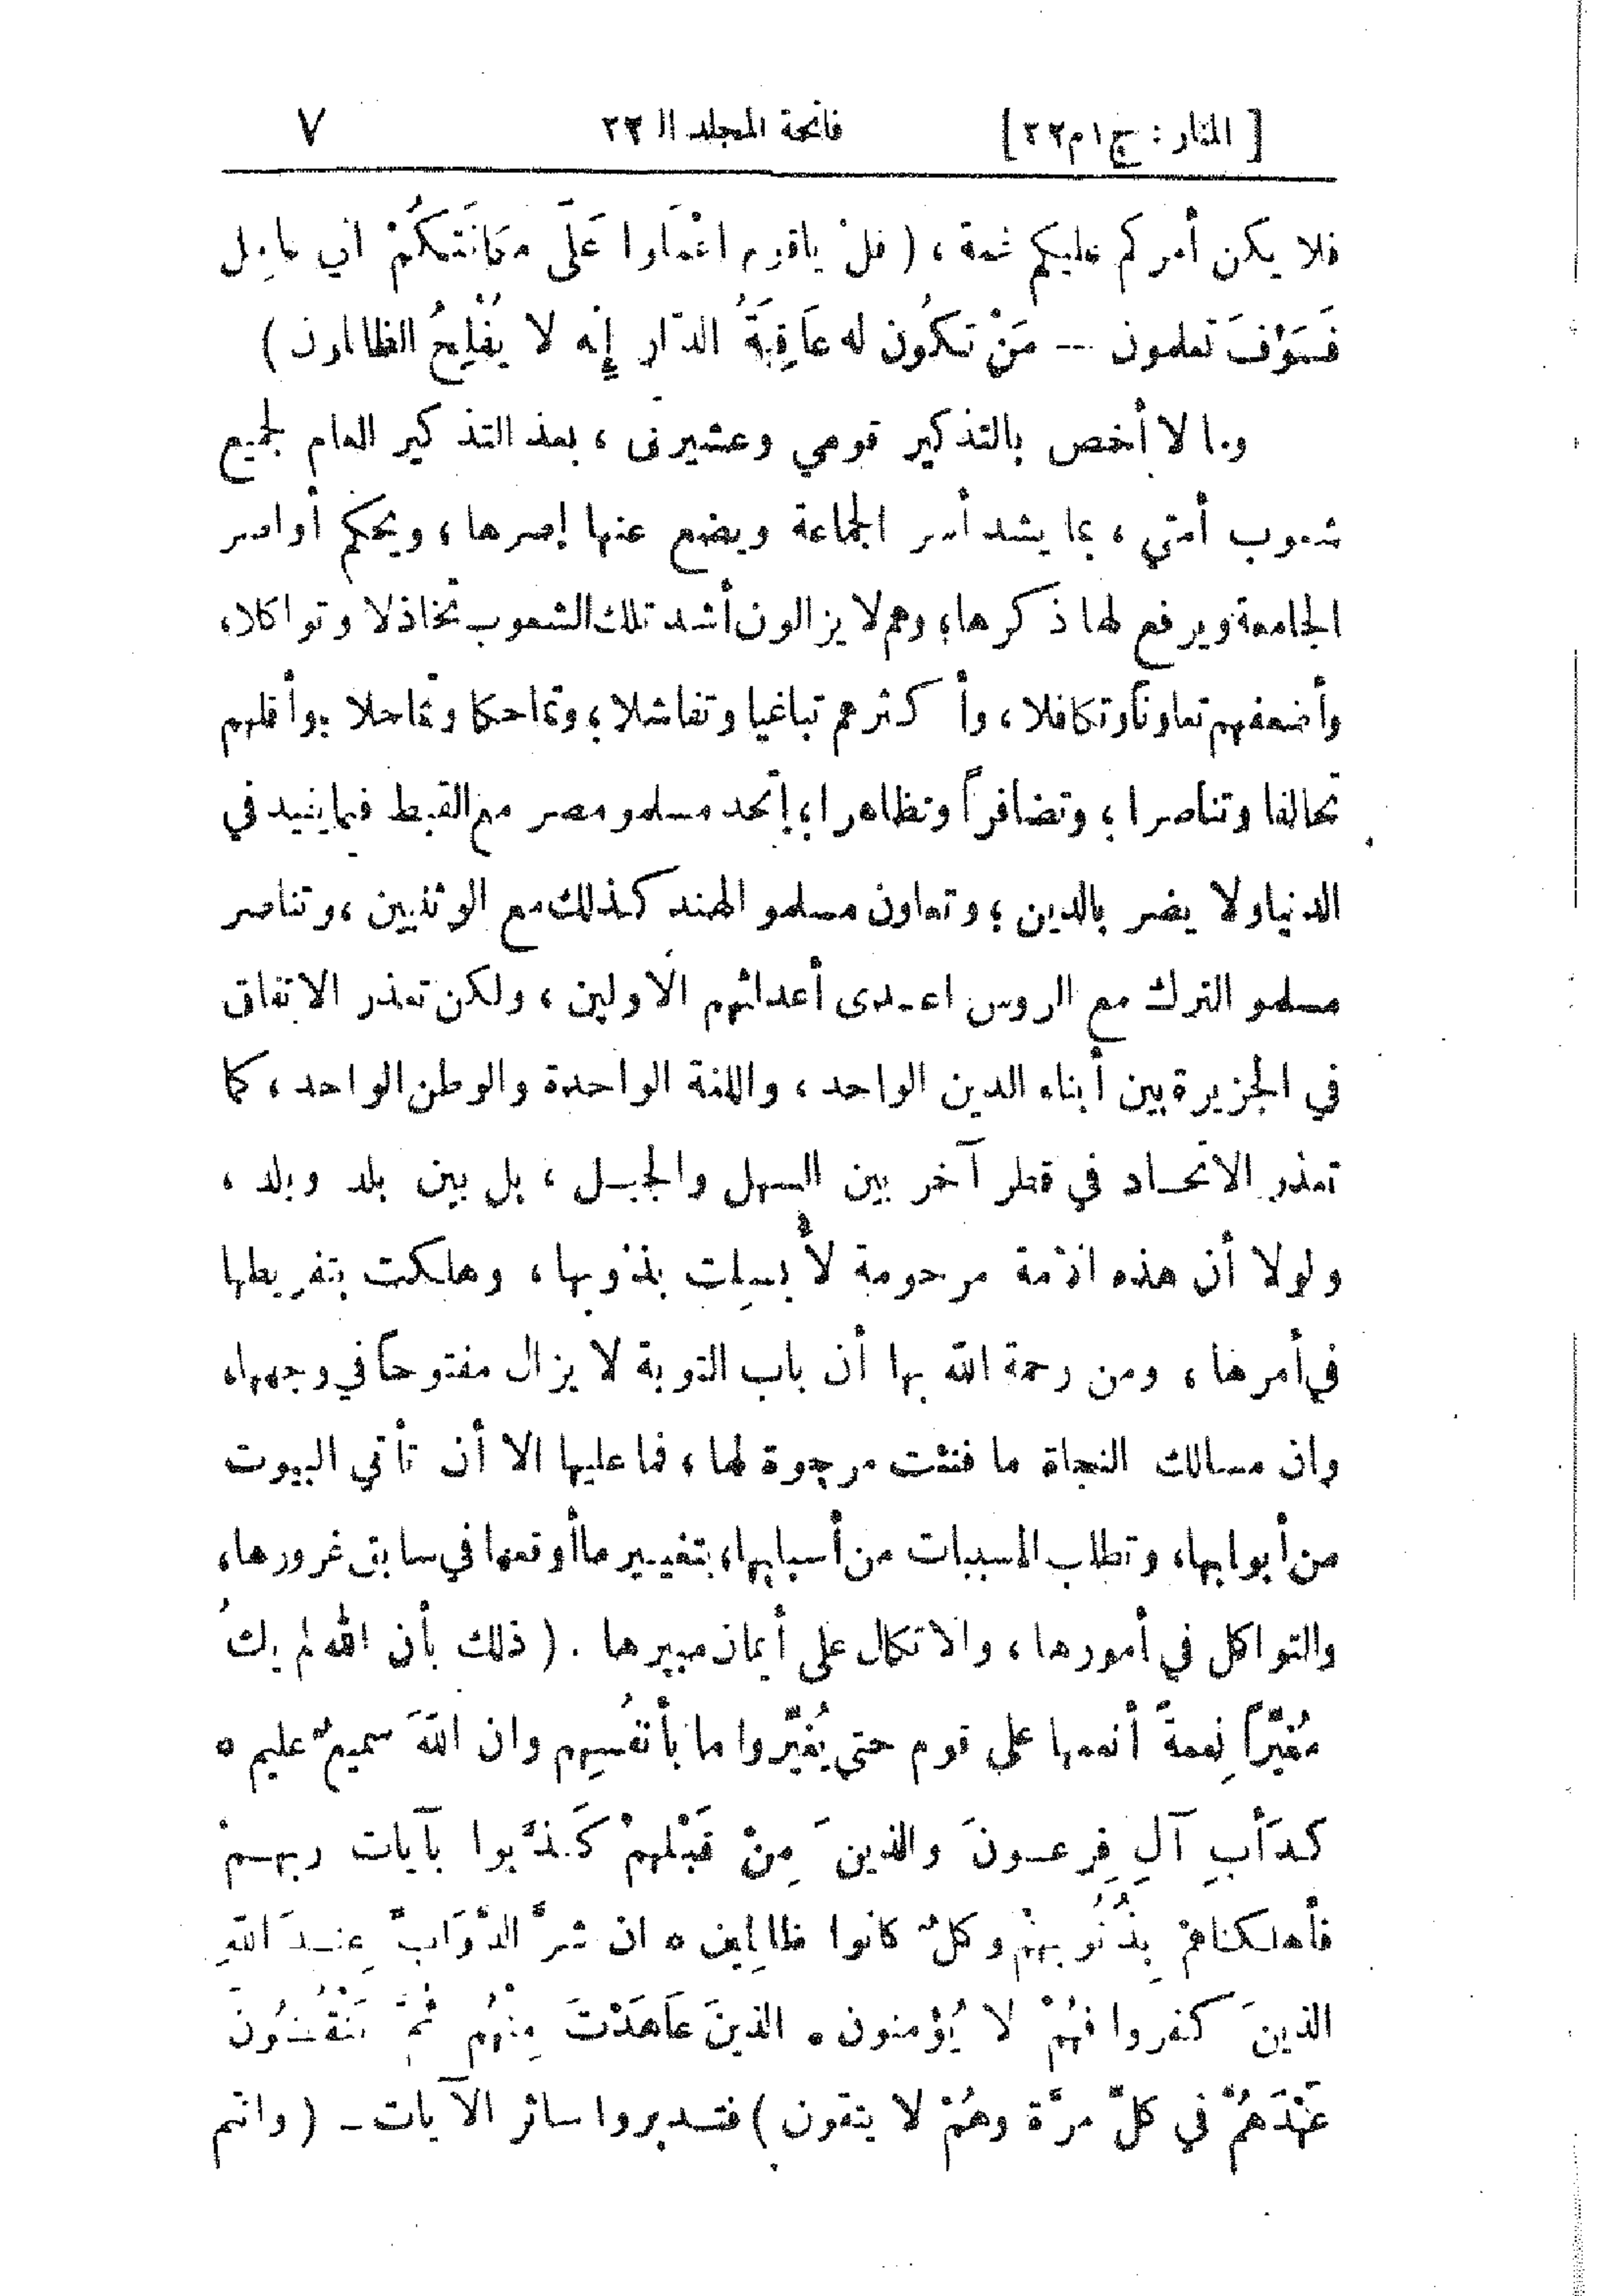 [ المنار : ج ١ م ٢٢ ] فاتحة المجلد الـ ٢٣ ٧
فلا يكن أمركم عليكم غمة ، ( قلْ ياقوم اعْمَلوا عَلَى مَكانَتِكُمْ اني عامل
فَسَوْفَ تعلمون -- مَنْ تَكُون له عَاقِبَةُ الدّار إِنه لا يُفْلِحُ الظالمون )
ومالا أخص بالتذكير قومي وعشيرتي ، بعد التذكير العام لجميع
شعوب أمتي ، بما يشد أسر الجماعة ويضع عنها إصرها ، ويحكم أواصر
الجامعة ويرفع لها ذكرها ؛ وهم لا يزالون أشد تلك الشعوب تخاذلا وتواكلا ،
وأضعفهم تعاوناً وتكافلا ، وأكثرهم تباغيا وتفاشلا ؛ وتماحكا وتماحلا ؛ وأقلهم
تحالفا وتناصرا ؛ وتضافراً وتظاهرا ؛ إتحد مسلمو مصر مع القبط فيما يفيد في
الدنيا ولا يضر بالدين ؛ وتعاون مسلمو الهند كذلك مع الوثنيين ، وتناصر
مسلمو الترك مع الروس اعدى أعدائهم الأولين ، ولكن تعذر الاتفاق
في الجزيرة بين أبناء الدين الواحد ، واللغة الواحدة والوطن الواحد ، كما
تعذر الاتحاد في قطر آخر بين السهل والجبل ، بل بين بلد وبلد ،
ولولا أن هذه الأمة مرحومة لأُبسِلت بذنوبها ، وهلكت بتفريطها
في أمرها ، ومن رحمة الله بها أن باب التوبة لا يزال مفتوحاً في وجهها ،
وان مسالك النجاة ما فتئت مرجوة لها ، فما عليها الا أن تأتي البيوت
من أبوابها ، وتطلب المسببات من أسبابها ، بتغيير ما أوقعها في سابق غرورها ،
والتواكل في أمورها ، والاتكال على أيمان مبيرها . ( ذلك بأن الله لم يكُ
مُغيِّراً نِعمةً أنعمها على قوم حتى يُغيِّروا ما بأنفُسِهم وان اللهَ سميعٌ عليم ٥
كدَأبِ آلِ فِرعونَ والذينَ مِنْ قَبْلهِمْ كَذَّبوا بآيات ربهمْ
فأهلكناهمْ بِذُنُوبهِمْ وكلٌ كانوا ظالمِين ٥ ان شرَّ الدَّوَابِّ عِندَ اللهِ
الذينَ كفروا فهُمْ لا يُؤمنون . الذينَ عَاهَدْتَ مِنْهُم ثُمَّ يَنْقُضُونَ
عَهْدَهُمْ في كلِّ مرَّة وهُمْ لا يتقون ) فتدبروا سائر الآيات ـ ( وانتم